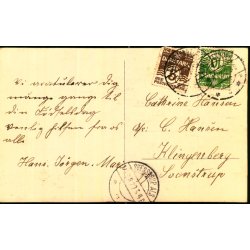 Vi gratulerer dig
mange gang til
din Födselsdag
venlig hilsen fra os
alle
Hans, Jörgen, Marie
Cathrine Hansen
C. Hansen
Klingenberg
Svenstrup